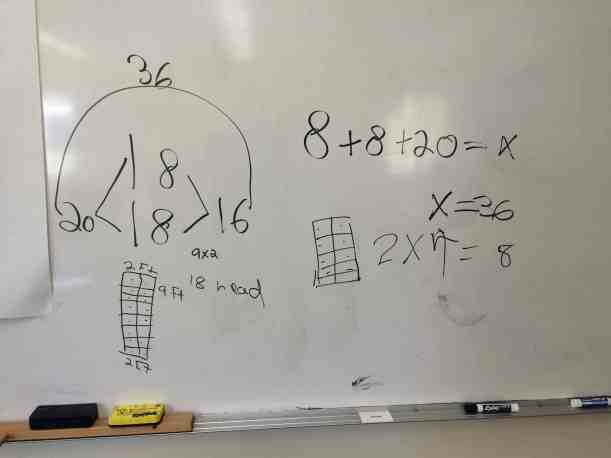 36
18
20 18 16
9x2
2 Ft
9 Ft 18 head
2 FT
8+8+20=x
x=36
2x4=8
EXPO